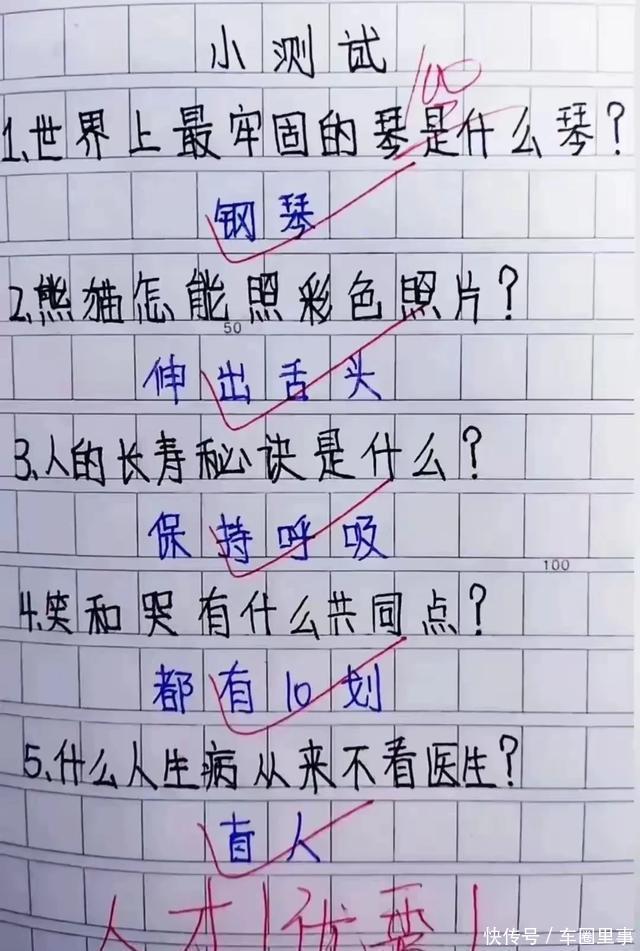 小测试
100
1.世界上最牢固的琴是什么琴?
钢琴
2.熊猫怎能照彩色照片?
50
伸出舌头
3.人的长寿秘诀是什么?
保持呼吸
100
4.笑和哭有什么共同点?
都有10划
5.什么人生病从来不看医生?
盲人
人才!优秀!
快传号/车圈里事